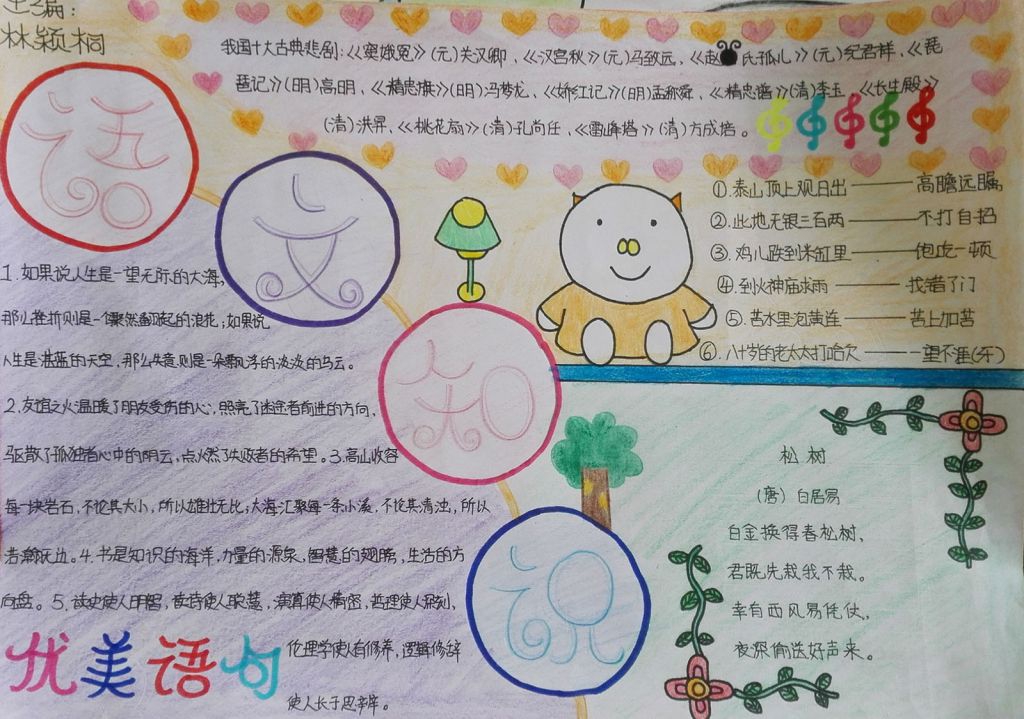 主编:
林颖桐
我国十大古典悲剧:《窦娥冤》(元)关汉卿、《汉宫秋》(元)马致远、《赵氏孤儿》(元)纪君祥、《琵
琶记》(明)高明、《精忠旗》(明)冯梦龙、《娇红记》(明)孟称舜、《精忠谱》(清)李玉、《长生殿》
(清)洪昇、《桃花扇》(清)孔尚任、《雷峰塔》(清)方成培。
语
文
知
识
①.泰山顶上观日出——高瞻远瞩
②.此地无银三百两——不打自招
③.鸡儿跌到米缸里——饱吃一顿
④.到火神庙求雨——找错了门
⑤.苦水里泡黄连——苦上加苦
⑥.八十岁的老太太打哈欠——一望不涯(牙)
1.如果说人生是一望无际的大海,
那么挫折则是一个骤然翻起的浪花;如果说
人生是湛蓝的天空,那么失意则是一朵飘浮的淡淡的乌云。
2.友谊之火温暖了朋友受伤的心,照亮了迷途者前进的方向,
驱散了孤独者心中的阴云,点燃了失败者的希望。3.高山收容
每一块岩石,不论其大小,所以雄壮无比;大海汇聚每一条小溪,不论其清浊,所以
浩瀚无边。4.书是知识的海洋,力量的源泉,智慧的翅膀,生活的方
向盘。5.读史使人明智,读诗使人聪慧,演算使人精密,哲理使人深刻,
伦理学使人有修养,逻辑修辞
使人长于思辨。
优美语句
松树
(唐)白居易
白金换得春松树,
君既先栽我不栽。
幸有西风易凭仗,
夜深偷送好声来。